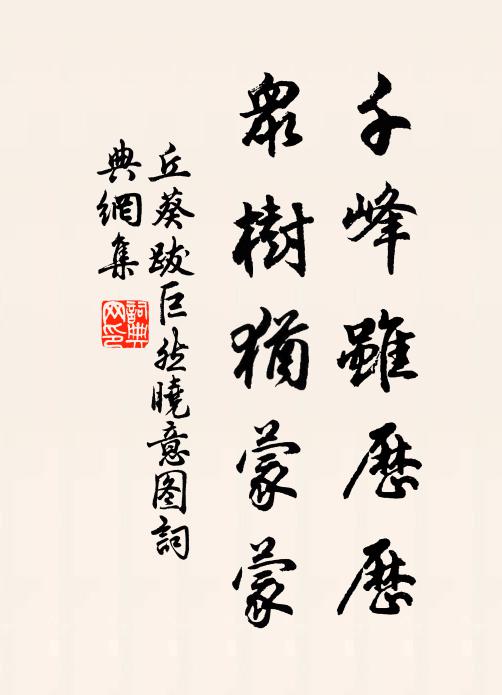 千峰雖歷歷
眾樹猶蒙蒙
丘葵跋巨然曉意图詞
典網集
詞典
网印